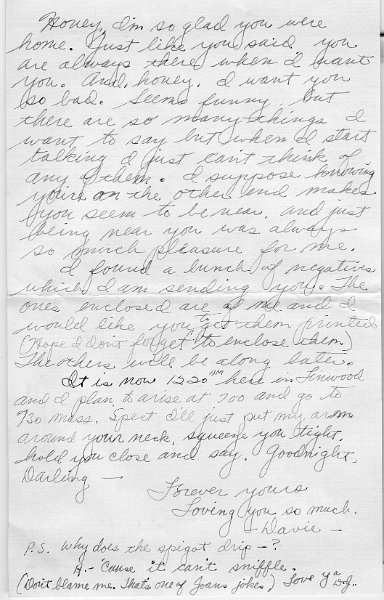 Honey, I'm so glad you were
home. Just like you said you
are always there when I want
you. And, honey, I want you
so bad. Seems funny, but
there are so many things I
want to say but when I start
talking I just can't think of
any of them. I suppose knowing
you're on the other end makes
you seem to be near, and just
being near you was always
so much pleasure for me.
I found a bunch of negatives
which I am sending you. The
ones enclosed are of me and I
would like you to get them printed
(Hope I don't forget to enclose them)
The others will be along later.
It is now 1220 AM here in Linwood
and I plan to arise at 700 and go to
730 mass. Spect I'll just put my arm
around your neck, squeeze you tight,
hold you close and say. Goodnight,
Darling —
Forever yours
Loving you so much.
- Davie -
P.S. Why does the spigot drip —?
A.- 'Cause it can't sniffle.
(Don't blame me. That's one of Joans jokes) Love ya